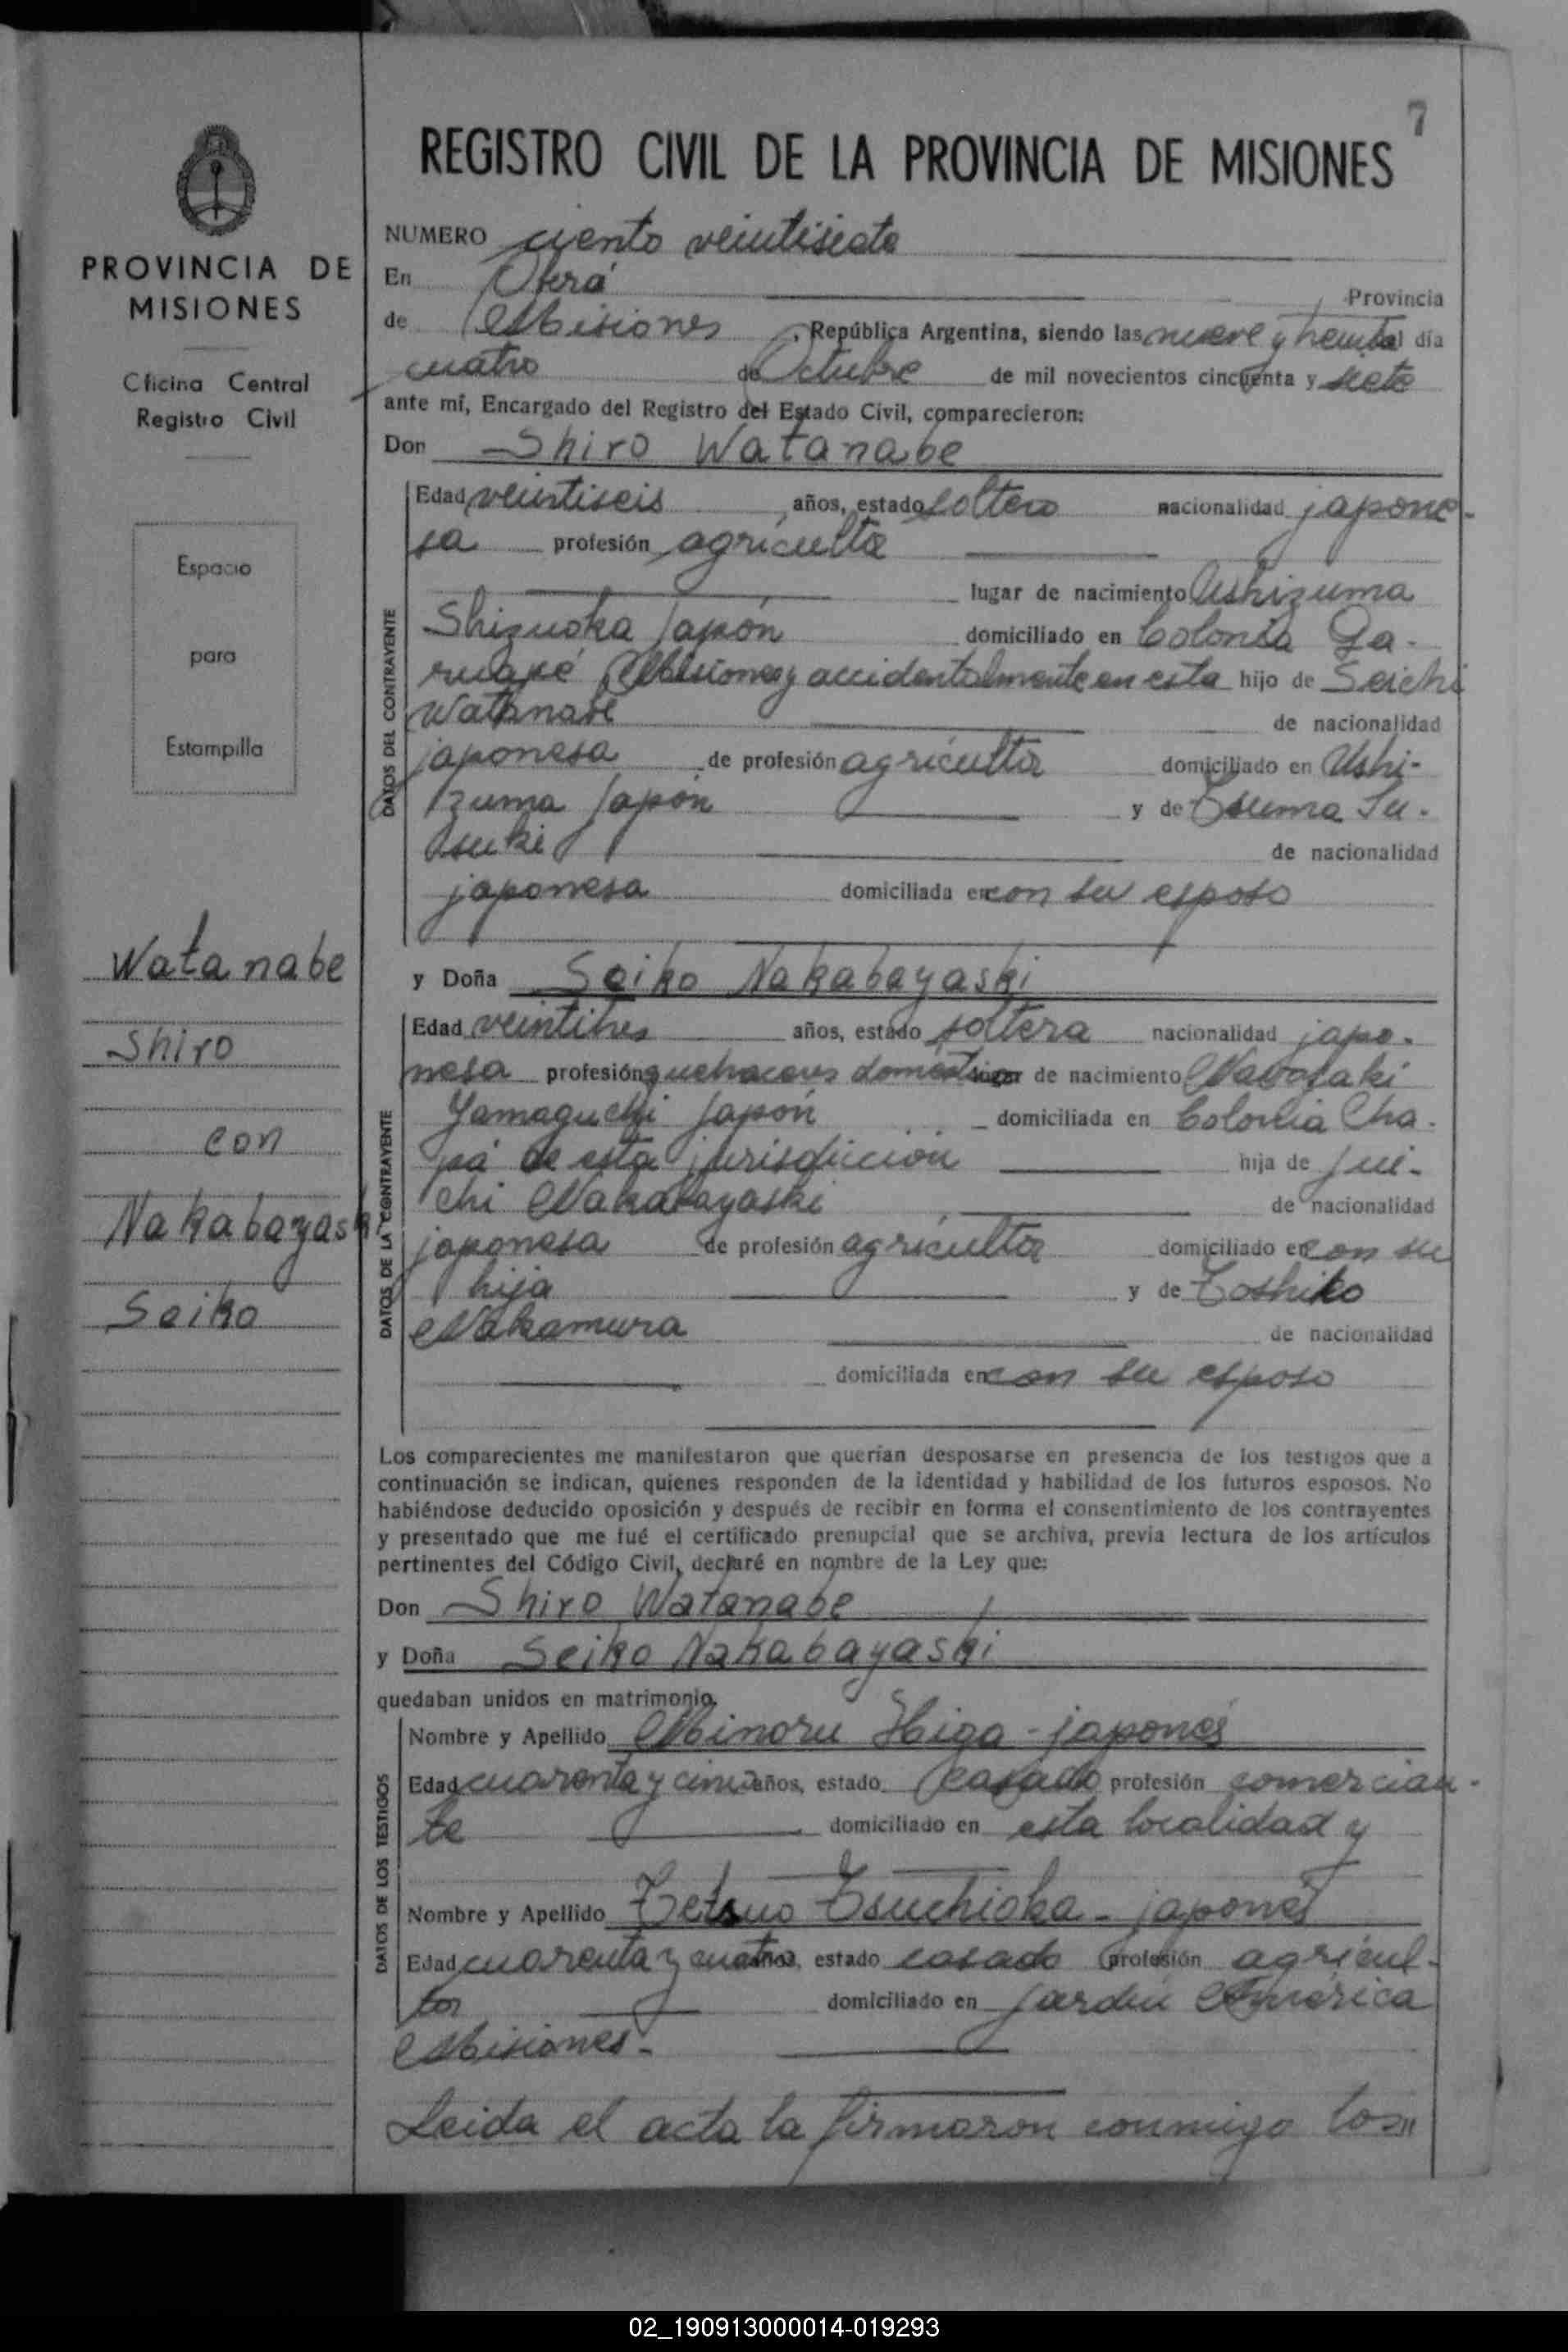 7
REGISTRO CIVIL DE LA PROVINCIA DE MISIONES
PROVINCIA DE
MISIONES
Oficina Central
Registro Civil
Espacio
para
Estampilla
Watanabe
Shiro
con
Nakabayashi
Seiko
NUMERO ciento veintisiete
En Oberá Provincia
de Misiones, República Argentina, siendo las nueve y treinta día
cuatro de Octubre de mil novecientos cincuenta y siete
ante mí, Encargado del Registro del Estado Civil, comparecieron:
Don Shiro Watanabe
DATOS DEL CONTRAYENTE
Edad veintiseis años, estado soltero nacionalidad japone-
sa profesión agricultor
lugar de nacimiento Ushizuma
Shizuoka Japón domiciliado en Colonia Ga-
ruapé Misiones y accidentalmente en esta hijo de Seichi
Watanabe de nacionalidad
japonesa de profesión agricultor domiciliado en Ushi-
zuma Japón y de Tsuma Su-
suki de nacionalidad
japonesa domiciliada en con su esposo
y Doña Seiko Nakabayashi
DATOS DE LA CONTRAYENTE
Edad veintitres años, estado soltera nacionalidad japo-
nesa profesión quehaceres domésticos lugar de nacimiento
Yamaguchi Japón domiciliada en Colonia Cha-
pá de esta jurisdiccion hija de Jui-
chi Nakabayashi de nacionalidad
japonesa de profesión agricultor domiciliado en con su
hija y de Toshiko
Nakamura de nacionalidad
domiciliada en con su esposo
Los comparecientes me manifestaron que querían desposarse en presencia de los testigos que a
continuación se indican, quienes responden de la identidad y habilidad de los futuros esposos. No
habiéndose deducido oposición y después de recibir en forma el consentimiento de los contrayentes
y presentado que me fué el certificado prenupcial que se archiva, previa lectura de los artículos
pertinentes del Código Civil, declaré en nombre de la Ley que:
Don Shiro Watanabe
y Doña Seiko Nakabayashi
quedaban unidos en matrimonio.
DATOS DE LOS TESTIGOS
Nombre y Apellido Minoru Higa - japonés
Edad cuarenta y cinco años, estado casado profesión comercian-
te domiciliado en esta localidad y
Nombre y Apellido Tetsuo Tsuchioka - japonés
Edad cuarenta y cuatro años, estado casado profesión agricul-
tor domiciliado en Jardín América
Misiones.-
Leida el acta la firmaron conmigo los"
02_190913000014-019293